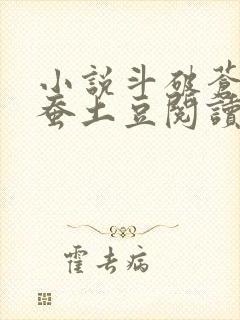 小說斗破蒼
蚕土豆閱讀
霍去病